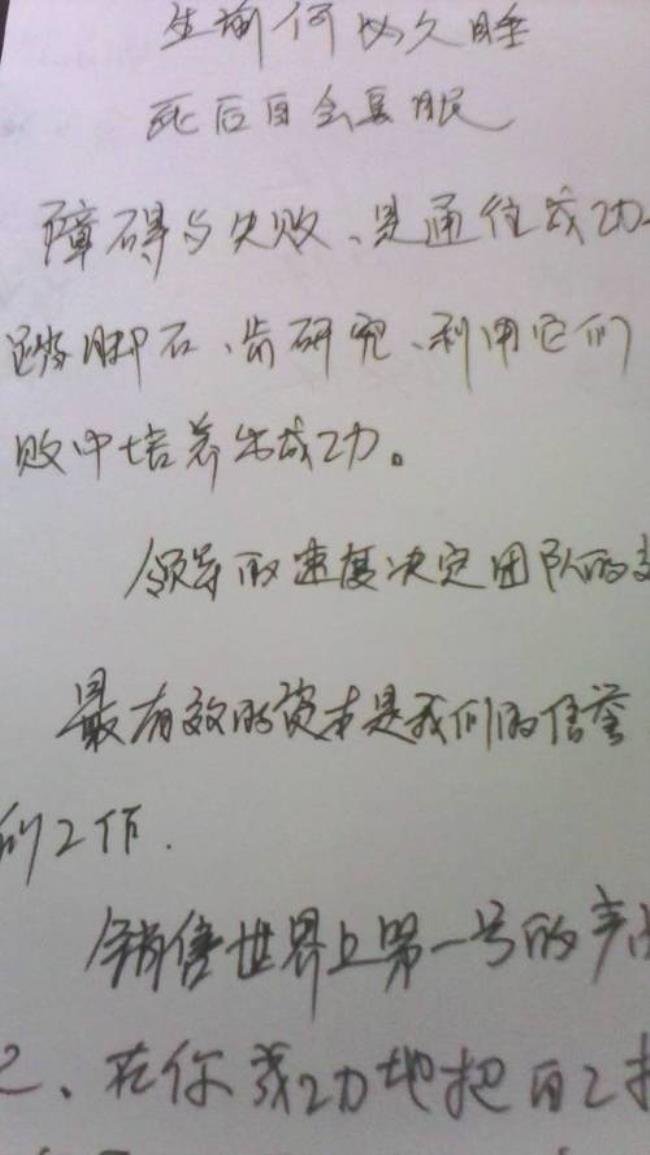 生前何必久睡
死后自会长眠
障碍与失败、是通往成功
踏脚石、肯研究、利用它们
败中培养出成功。
领导的速度决定团队的
最有效的资本是我们的信誉
的工作.
销售世界上第一号的产
、在你成功地把自己